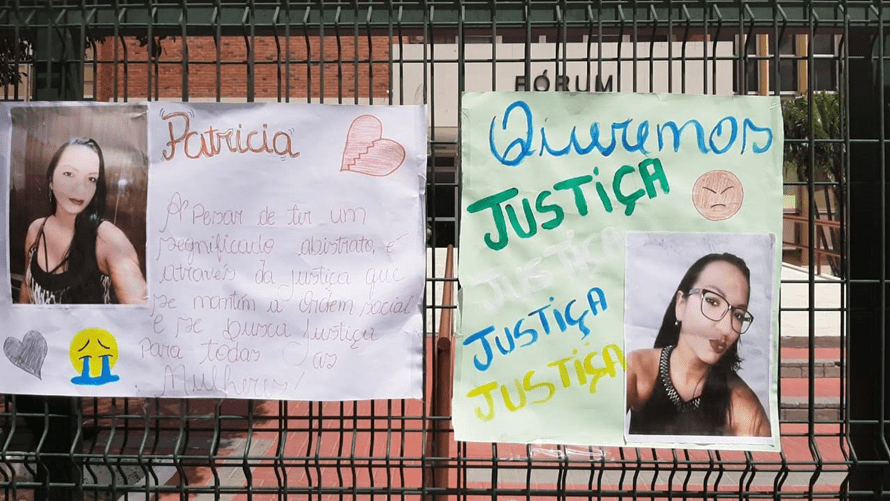 FÓRUM
Patricia
A Pesar de ter um
segnificado abistrato, é
através da justiça que
se mantim a Ordem social
e se busca justiça
Para todas as
Mulheres!
Queremos
JUSTIÇA
JUSTIÇA
JUSTIÇA
JUSTIÇA